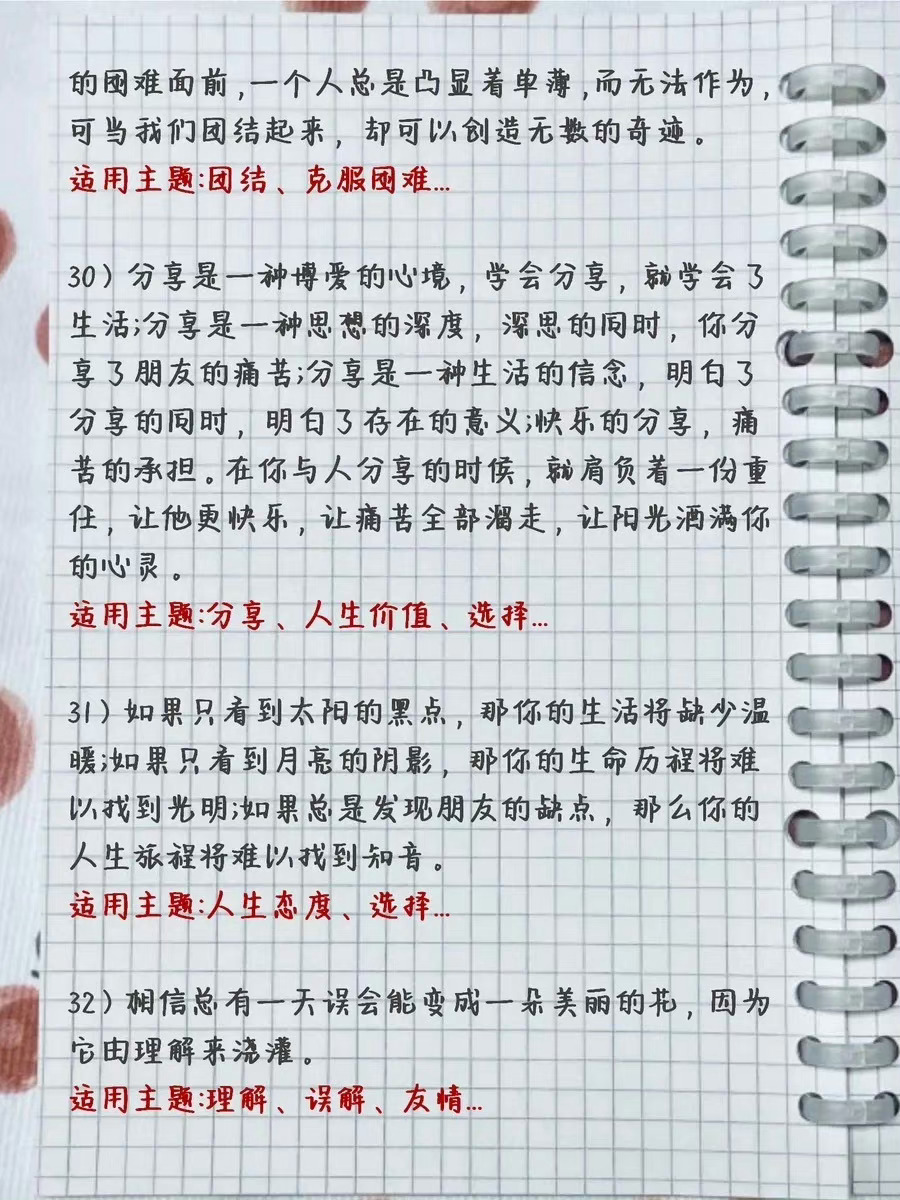 的困难面前,一个人总是凸显着单薄,而无法作为,
可当我们团结起来，却可以创造无数的奇迹。
适用主题:团结、克服困难...
30）分享是一种博爱的心境，学会分享，就学会了
生活;分享是一种思想的深度，深思的同时，你分
享了朋友的痛苦;分享是一种生活的信念，明白了
分享的同时，明白了存在的意义;快乐的分享，痛
苦的承担。在你与人分享的时候，就肩负着一份重
任，让他更快乐，让痛苦全部溜走，让阳光洒满你
的心灵。
适用主题:分享、人生价值、选择...
31）如果只看到太阳的黑点，那你的生活将缺少温
暖;如果只看到月亮的阴影，那你的生命历程将难
以找到光明;如果总是发现朋友的缺点，那么你的
人生旅程将难以找到知音。
适用主题:人生态度、选择...
32）相信总有一天误会能变成一朵美丽的花，因为
它由理解来浇灌。
适用主题:理解、误解、友情...